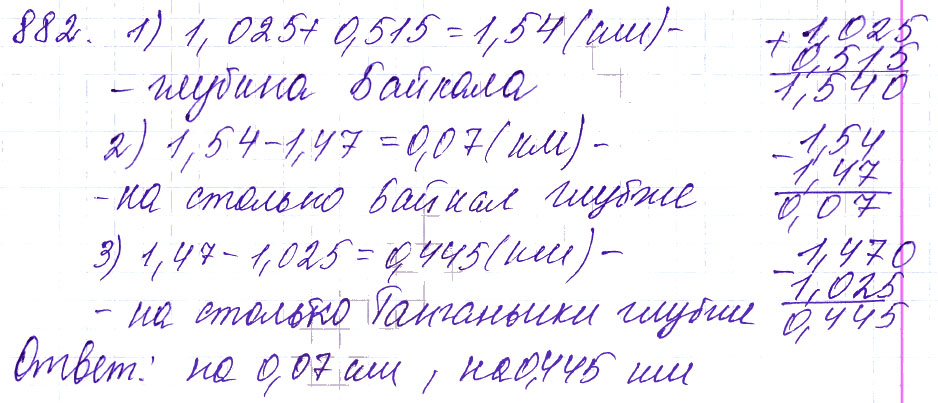 882. 1) 1,025 + 0,515 = 1,54 (км) -
- глубина Байкала
+ 1,025
0,515
1,540
2) 1,54 - 1,47 = 0,07 (км) -
- на столько Байкал глубже
- 1,54
1,47
0,07
3) 1,47 - 1,025 = 0,445 (км) -
- на столько Танганьики глубже
- 1,470
1,025
0,445
Ответ: на 0,07 км, на 0,445 км